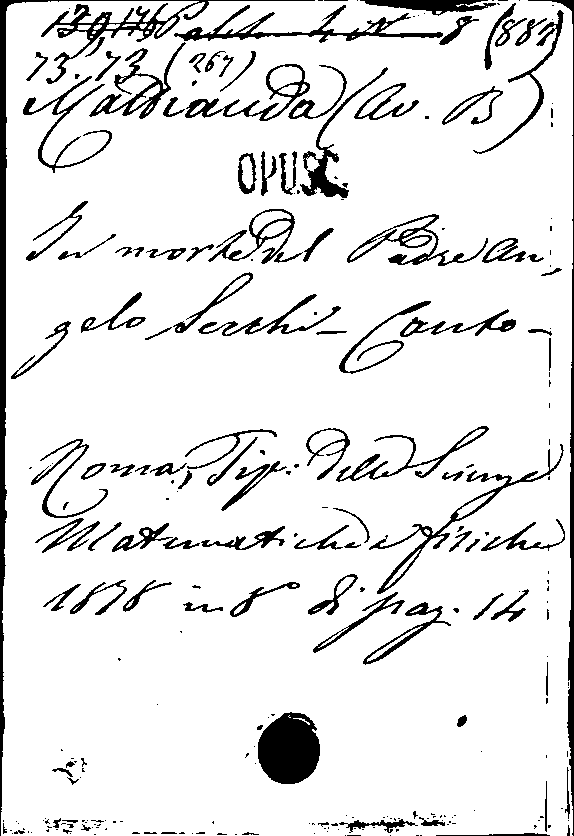 8 (887)
73.73 (267)
Maldianda (Av. B)
OPUSC
In morte del Padre An,
gelo Secchi - Canto -
Roma, Tip: delle Scienze
Matematiche e fisiche
1878 in 8° di pag. 14